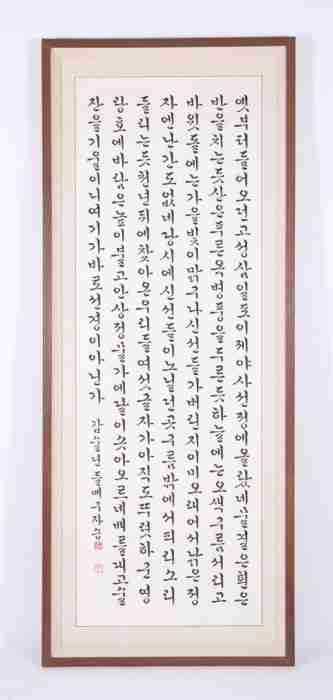 옛부터들어오던고성삼일포이제야사선정에올랐네물결은흰은
반을치는듯산은푸른옥병풍을두른듯하늘에는오색구름서리고
바윗돌에는가을빛이맑구나신선들가버린지이미오래어서낡은정
자엔난간도없네당시에신선들이노닐던곳구름밖에서피리소리
들리는듯천년뒤에찾아온우리들여섯글자가아직도뚜렷하군영
랑호에바람은높이불고안상정물가에달이솟아오르네배를띄고술
잔을기울이니여기가바로선경이아닌가 갑술년들메구자송